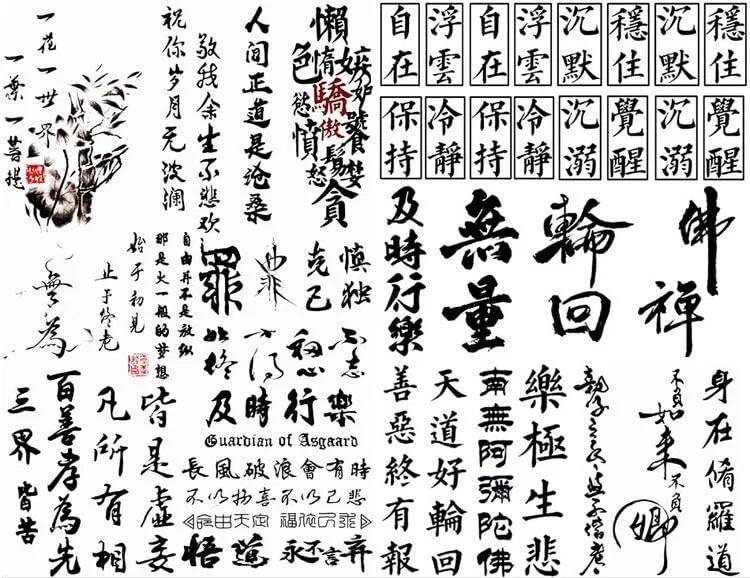 一花一世界
一葉一菩提
人间正道是沧桑
敬我余生不悲欢
祝你岁月无波澜
懶惰
嫉妒
色慾
驕傲
饕餮
憤怒
貪婪
自在 浮雲 自在 浮雲 沉默 穩住 沉默 穩住
保持 冷靜 保持 冷靜 沉溺 覺醒 沉溺 覺醒
無為
始于初見
止于终老
自由并不是放纵
那是火一般的梦想
罪
罪
慎独
克己
不忘
初心
方得
始终
及時行樂
Guardian of Asgaard
長風破浪會有時
不以物喜不以己悲
悟道
永不言弃
凡所有相
皆是虚妄
百善孝為先
三界皆苦
及時行樂
無量
輪回
佛
禅
善惡終有報
天道好輪回
南無阿彌陀佛
樂極生悲
不負如来不負卿
身在脩羅道